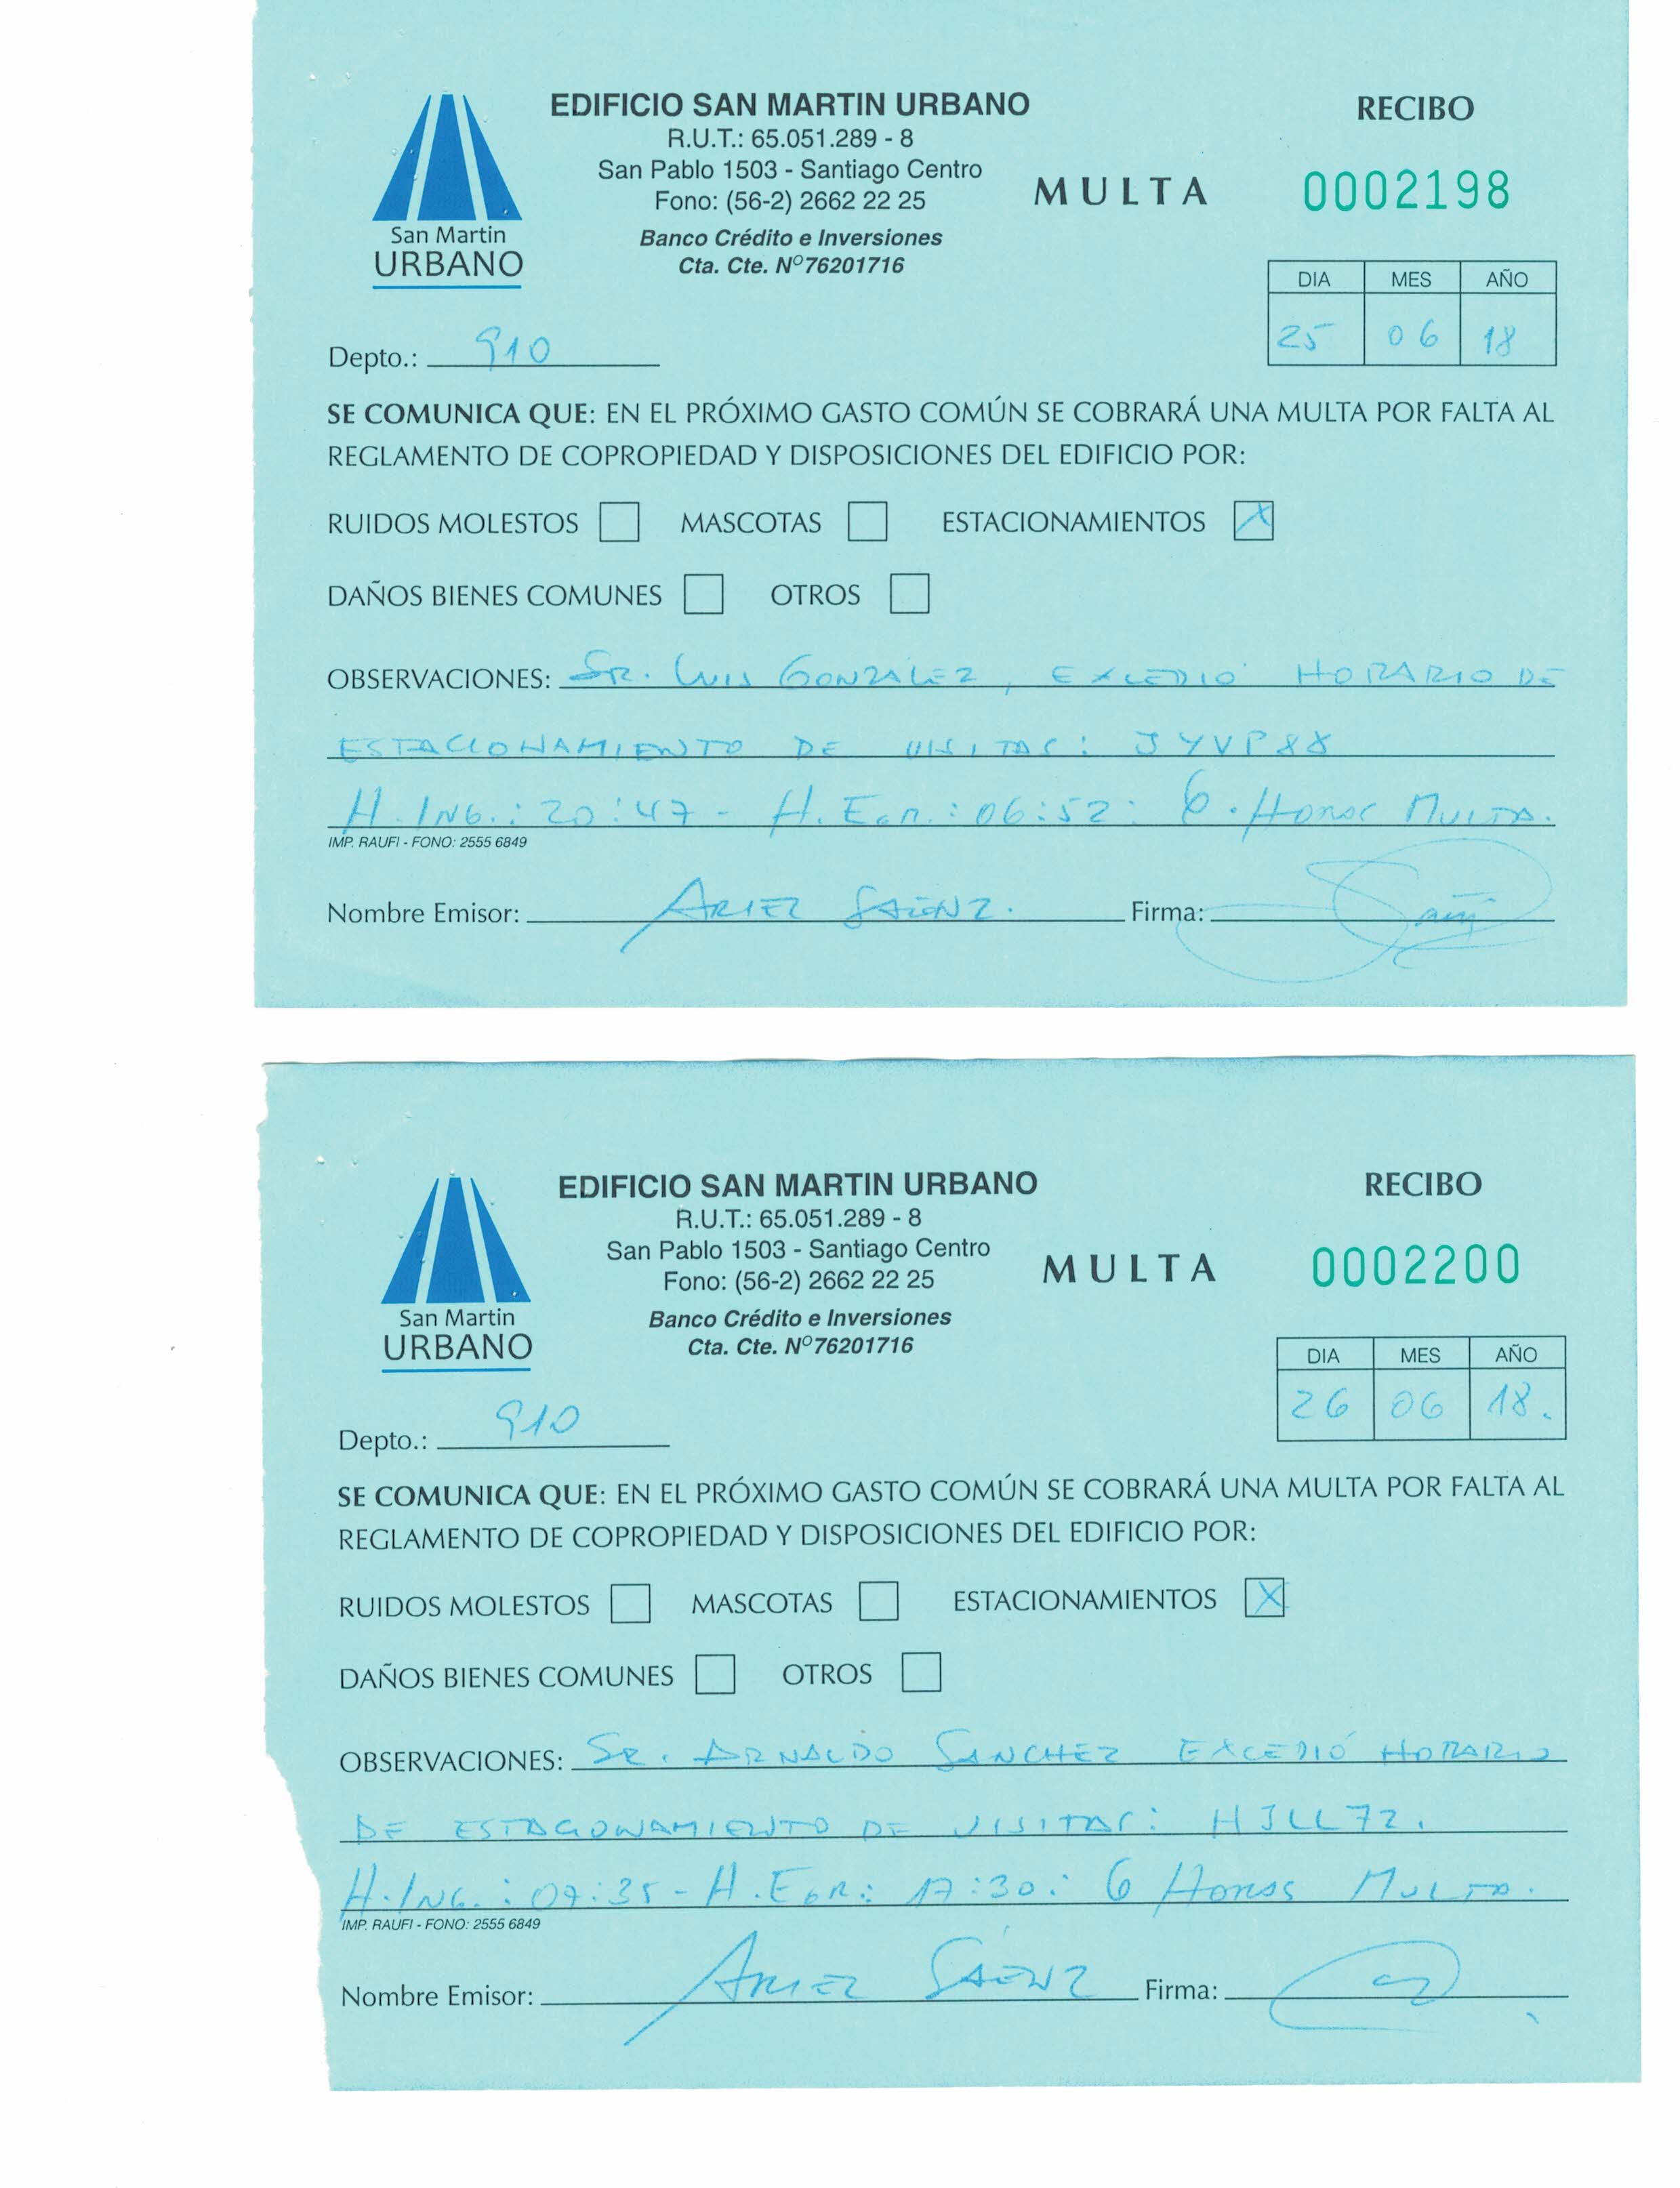 EDIFICIO SAN MARTIN URBANO
R.U.T.: 65.051.289 - 8
San Pablo 1503 - Santiago Centro
Fono: (56-2) 2662 22 25
Banco Crédito e Inversiones
Cta. Cte. Nº 76201716
San Martin
URBANO
MULTA
RECIBO
0002198
DIA MES AÑO
25 06 18
Depto.: 910
SE COMUNICA QUE: EN EL PRÓXIMO GASTO COMÚN SE COBRARÁ UNA MULTA POR FALTA AL
REGLAMENTO DE COPROPIEDAD Y DISPOSICIONES DEL EDIFICIO POR:
RUIDOS MOLESTOS MASCOTAS ESTACIONAMIENTOS X
DAÑOS BIENES COMUNES OTROS
OBSERVACIONES: SR. LUIS GONZALEZ, EXCEDIÓ HORARIO DE
ESTACIONAMIENTO DE VISITAS: JYVP88
H. ING.: 20:47 - H. EGR.: 06:52: 6. HORAS MULTA.
IMP. RAUFI - FONO: 2555 6849
Nombre Emisor: ARIEL SAENZ. Firma:
EDIFICIO SAN MARTIN URBANO
R.U.T.: 65.051.289 - 8
San Pablo 1503 - Santiago Centro
Fono: (56-2) 2662 22 25
Banco Crédito e Inversiones
Cta. Cte. Nº 76201716
San Martin
URBANO
MULTA
RECIBO
0002200
DIA MES AÑO
26 06 18.
Depto.: 910
SE COMUNICA QUE: EN EL PRÓXIMO GASTO COMÚN SE COBRARÁ UNA MULTA POR FALTA AL
REGLAMENTO DE COPROPIEDAD Y DISPOSICIONES DEL EDIFICIO POR:
RUIDOS MOLESTOS MASCOTAS ESTACIONAMIENTOS X
DAÑOS BIENES COMUNES OTROS
OBSERVACIONES: SR. ARNALDO SANCHEZ EXCEDIÓ HORARIO
DE ESTACIONAMIENTO DE VISITAS: HJLL72.
H. ING.: 07:35 - H. EGR: 17:30: 6 HORAS MULTA.
IMP. RAUFI - FONO: 2555 6849
Nombre Emisor: ARIEL SAENZ Firma: